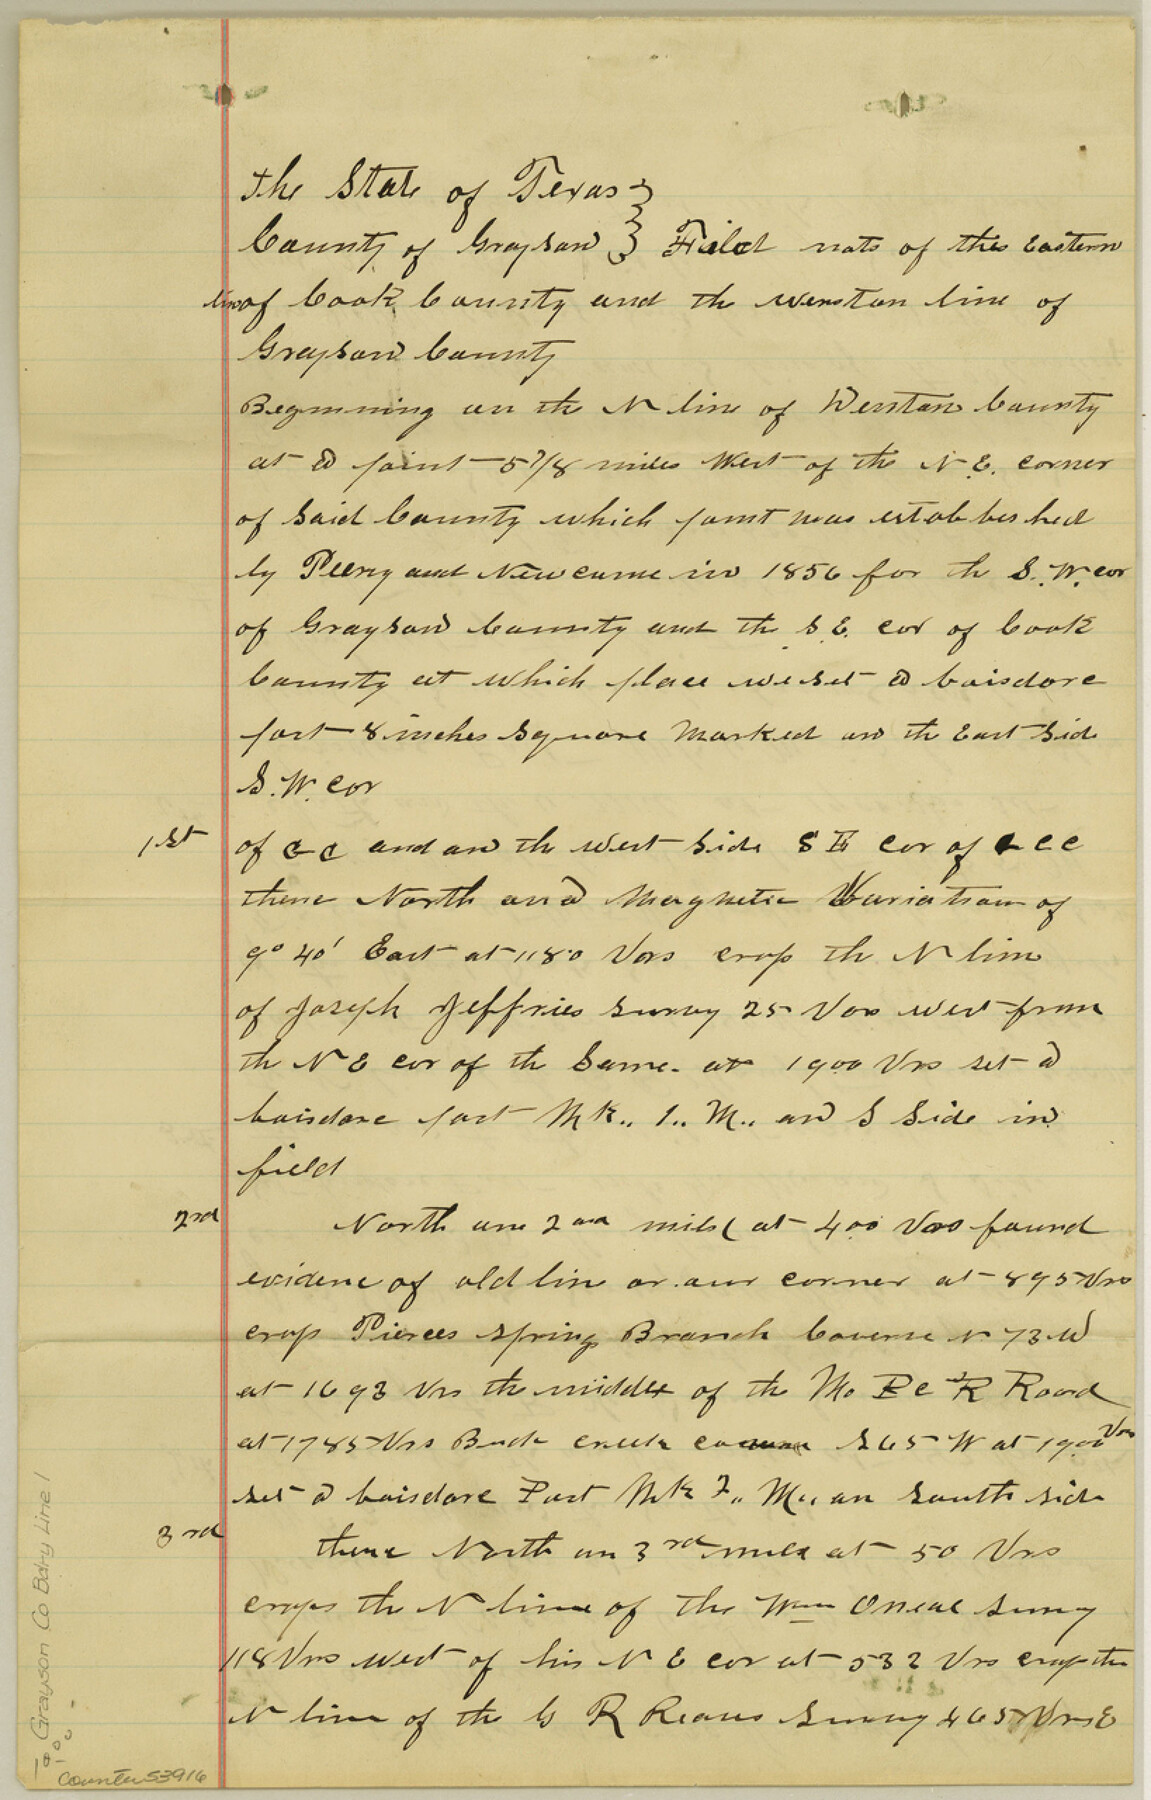 the State of Texas
County of Grayson } Field nots of the Eastern
line of Cook County and the Western line of
Grayson County
Beginning on the N line of Denton County
at a point 5 7/8 miles West of the N.E. corner
of Said County which point was established
by Peery and Newcume in 1856 for the S.W. cor
of Grayson County and the S.E. cor of Cook
County at which place we set a boisdarc
post 8 inches Square Marked on the East Side
S.W. cor
1st of G C and on the West Side S E cor of C C
thence North on a Magnetic Variation of
9° 40' East at 1180 Vrs crop the N line
of Joseph Jeffries Survey 25 Vrs west from
the N E cor of the Same. at 1900 Vrs set a
boisdarc post Mk.. 1.. M.. on S Side in
field
2nd North on 2nd mile at 400 Vrs found
evidence of old line or our corner at 895 Vrs
crops Pierces Spring Branch Course N 73 W
at 1693 Vrs the middle of the Mo P C R Road
at 1785 Vrs Buck creek course S 65 W at 1900 Vrs
set a boisdarc Post Mk 2.. M.. on South side
3rd thence North on 3rd mile at 50 Vrs
crops the N line of the Wm Oneal Survey
118 Vrs west of his N E cor at 532 Vrs crop the
N line of the G R Reaves Survey 465 Vrs E
Grayson Co Bdry Line 1
counter 53916